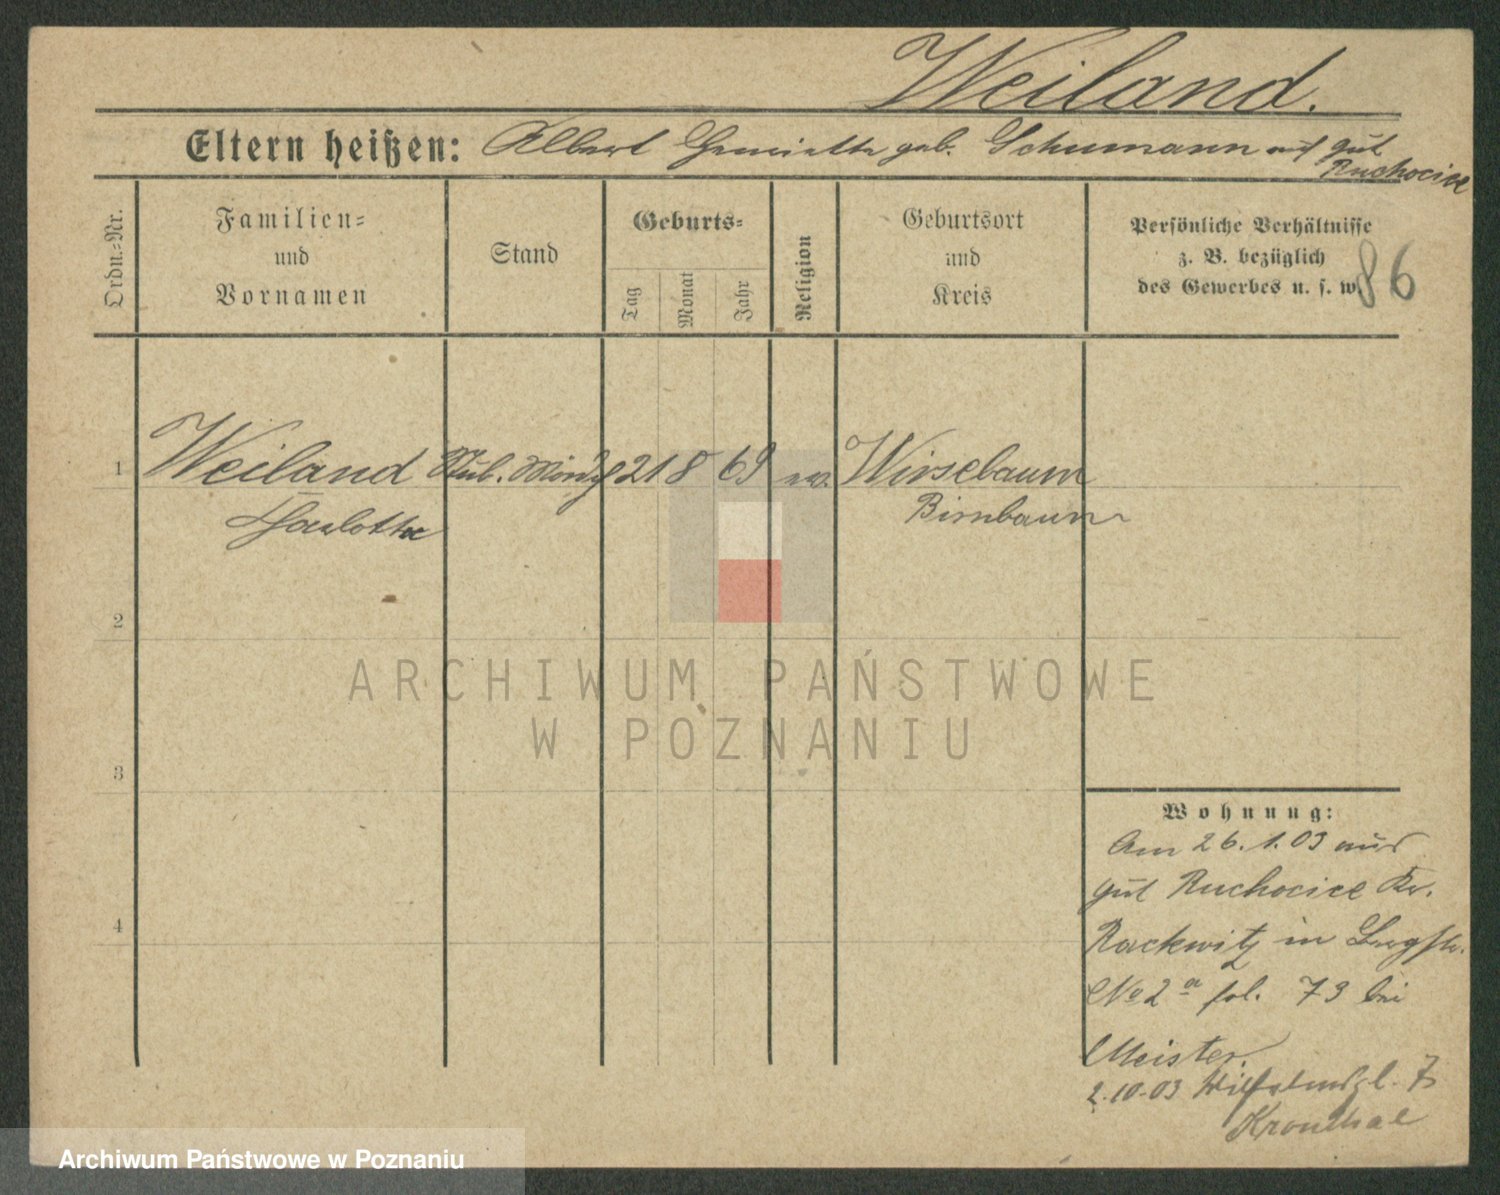 Weiland.
Eltern heißen: Albert Henriette geb. Schumann auf Gut
Ruchocice
Ordn.-Nr.
Familien-
und
Vornamen
Stand
Geburts-
Tag
Monat
Jahr
Religion
Geburtsort
und
Kreis
Persönliche Verhältnisse
z. B. bezüglich
des Gewerbes u. s. w.
86
1
Weiland
Stub. Mädch
21
8
69
ev.
Wirsebaum
Charlotte
Birnbaum
2
ARCHIWUM PAŃSTWOWE
W POZNANIU
3
Wohnung:
Am 26.1.03 aus
Gut Ruchocice Kr.
4
Rackwitz in
No 2a fol. 73 bei
Meister.
2.10.03 Wilhelmspl. 7
Kronthal
Archiwum Państwowe w Poznaniu